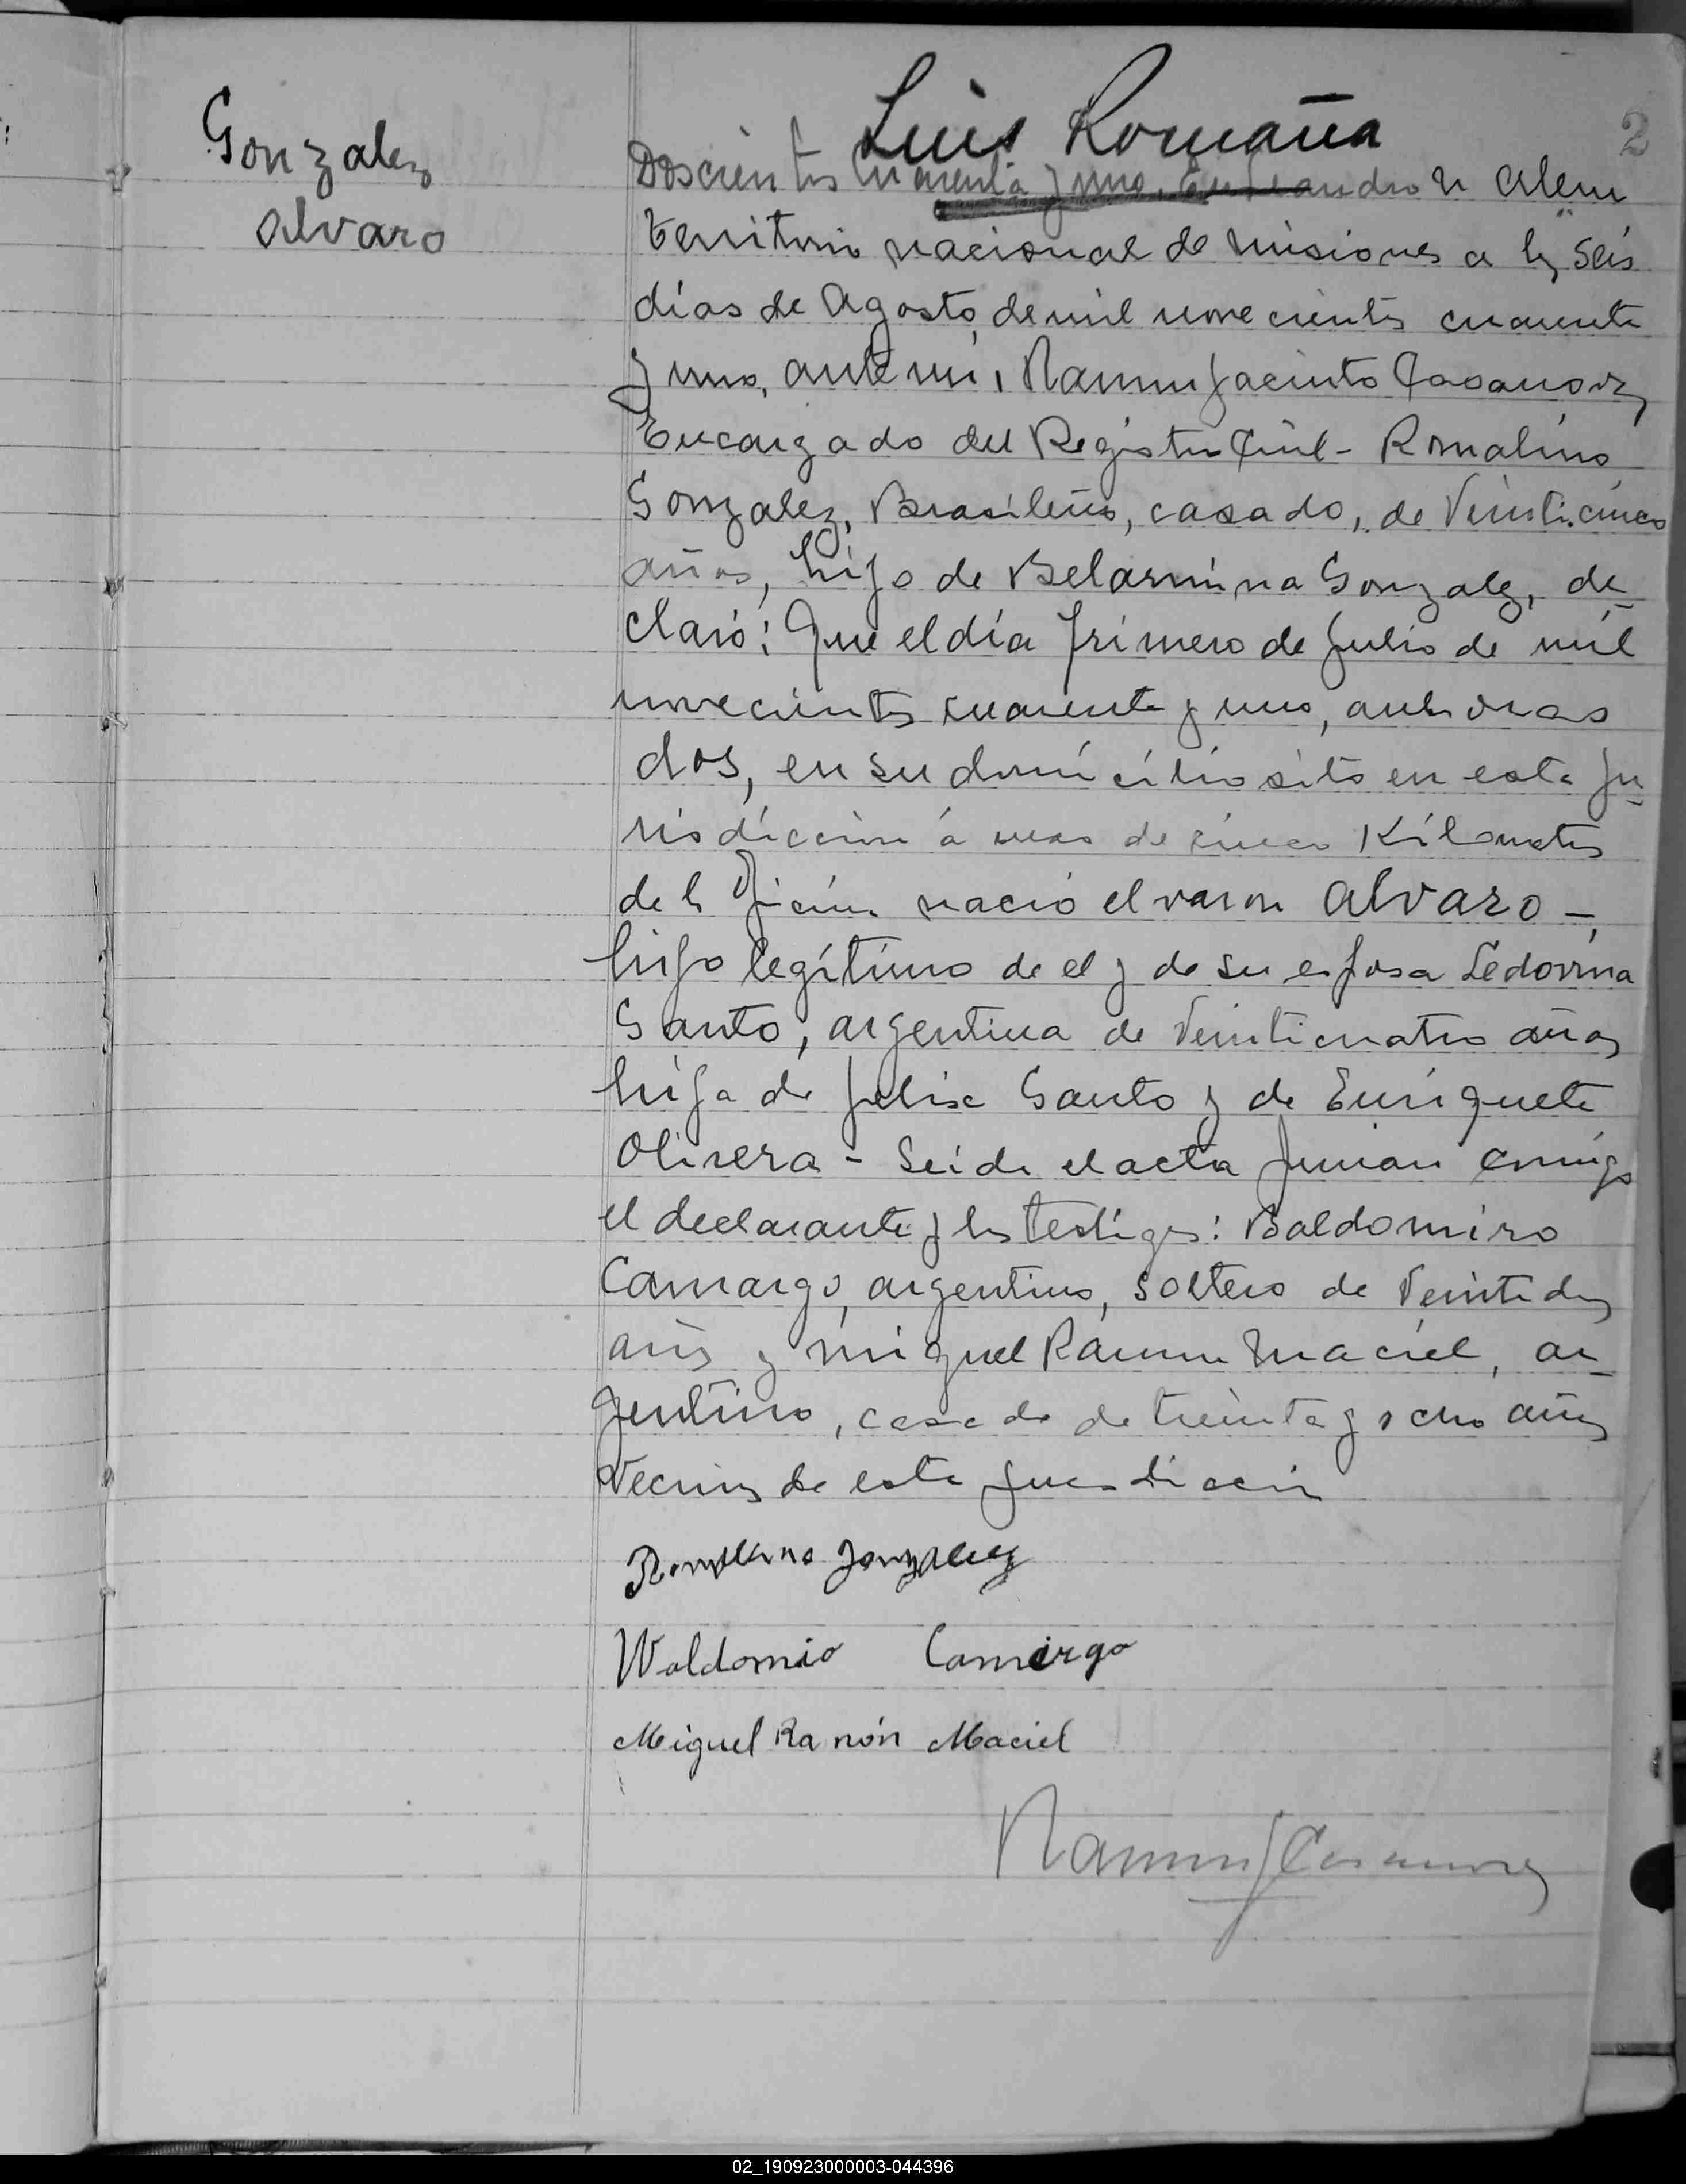 Luis Romaña
2
Gonzalez
Alvaro
Doscientos cuarenta y uno. En Leandro N Alem
territorio nacional de misiones a los seis
días de Agosto, de mil novecientos cuarenta
y uno, ante mí, Ramon Jacinto Casanova,
Encargado del Registro Civil - Romalino
Gonzalez, Brasileño, casado, de Veinticinco
años, hijo de Belarmina Gonzalez, de
claró: Que el día primero de Julio de mil
novecientos cuarenta y uno, a horas
dos, en su domicilio sito en esta ju
risdiccion á mas de cinco Kilometros
de la Oficina nació el varon Alvaro -,
hijo legítimo de el y de su esposa Ledovina
Santo, argentina de Veinticuatro años
hija de Felix Santo y de Enriqueta
Olivera - Leida el acta firman conmigo
el declarante y los testigos: Baldomiro
Camargo, argentino, soltero de Veintidos
años y miguel Ramon Maciel, ar
gentino, casado de treinta y ocho años
Vecinos de esta jurisdiccion
Romalino Gonzalez
Waldomio Camargo
Miguel Ramón Maciel
Ramon J Casanova
02_190923000003-044396